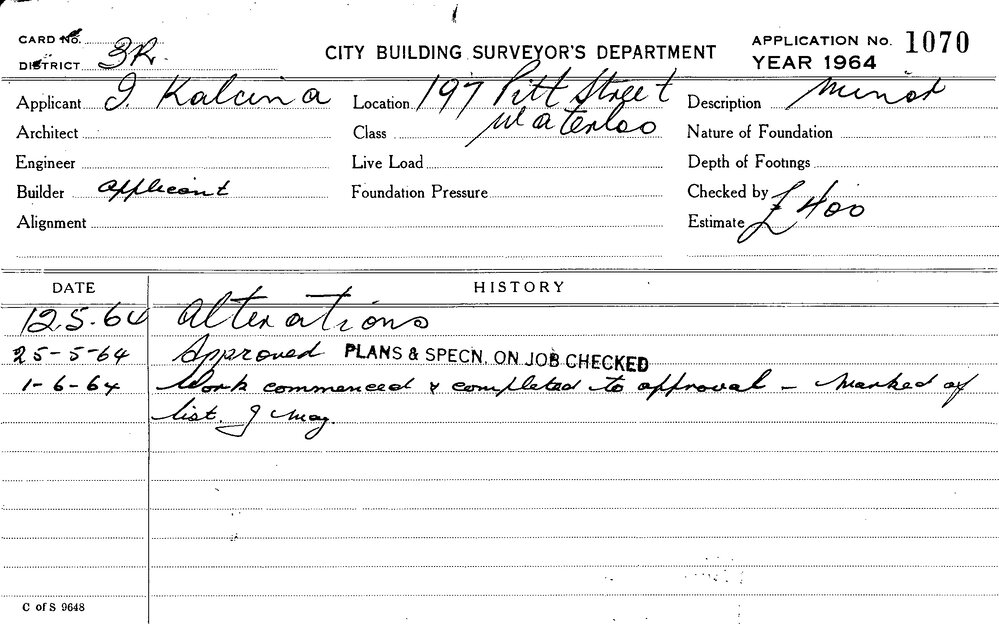 CARD No.
DISTRICT 3R.
CITY BUILDING SURVEYOR'S DEPARTMENT
APPLICATION No. 1070
YEAR 1964
Applicant J. Kalcina
Location 197 Pitt Street
Waterloo
Description Minor
Architect
Class
Nature of Foundation
Engineer
Live Load
Depth of Footings
Builder applicant
Foundation Pressure
Checked by
Alignment
Estimate £400
DATE HISTORY
12.5.64 Alterations
25-5-64 Approved PLANS & SPECN. ON JOB CHECKED
1-6-64 Work commenced & completed to approval - Marked of
list. J May.
C of S 9648